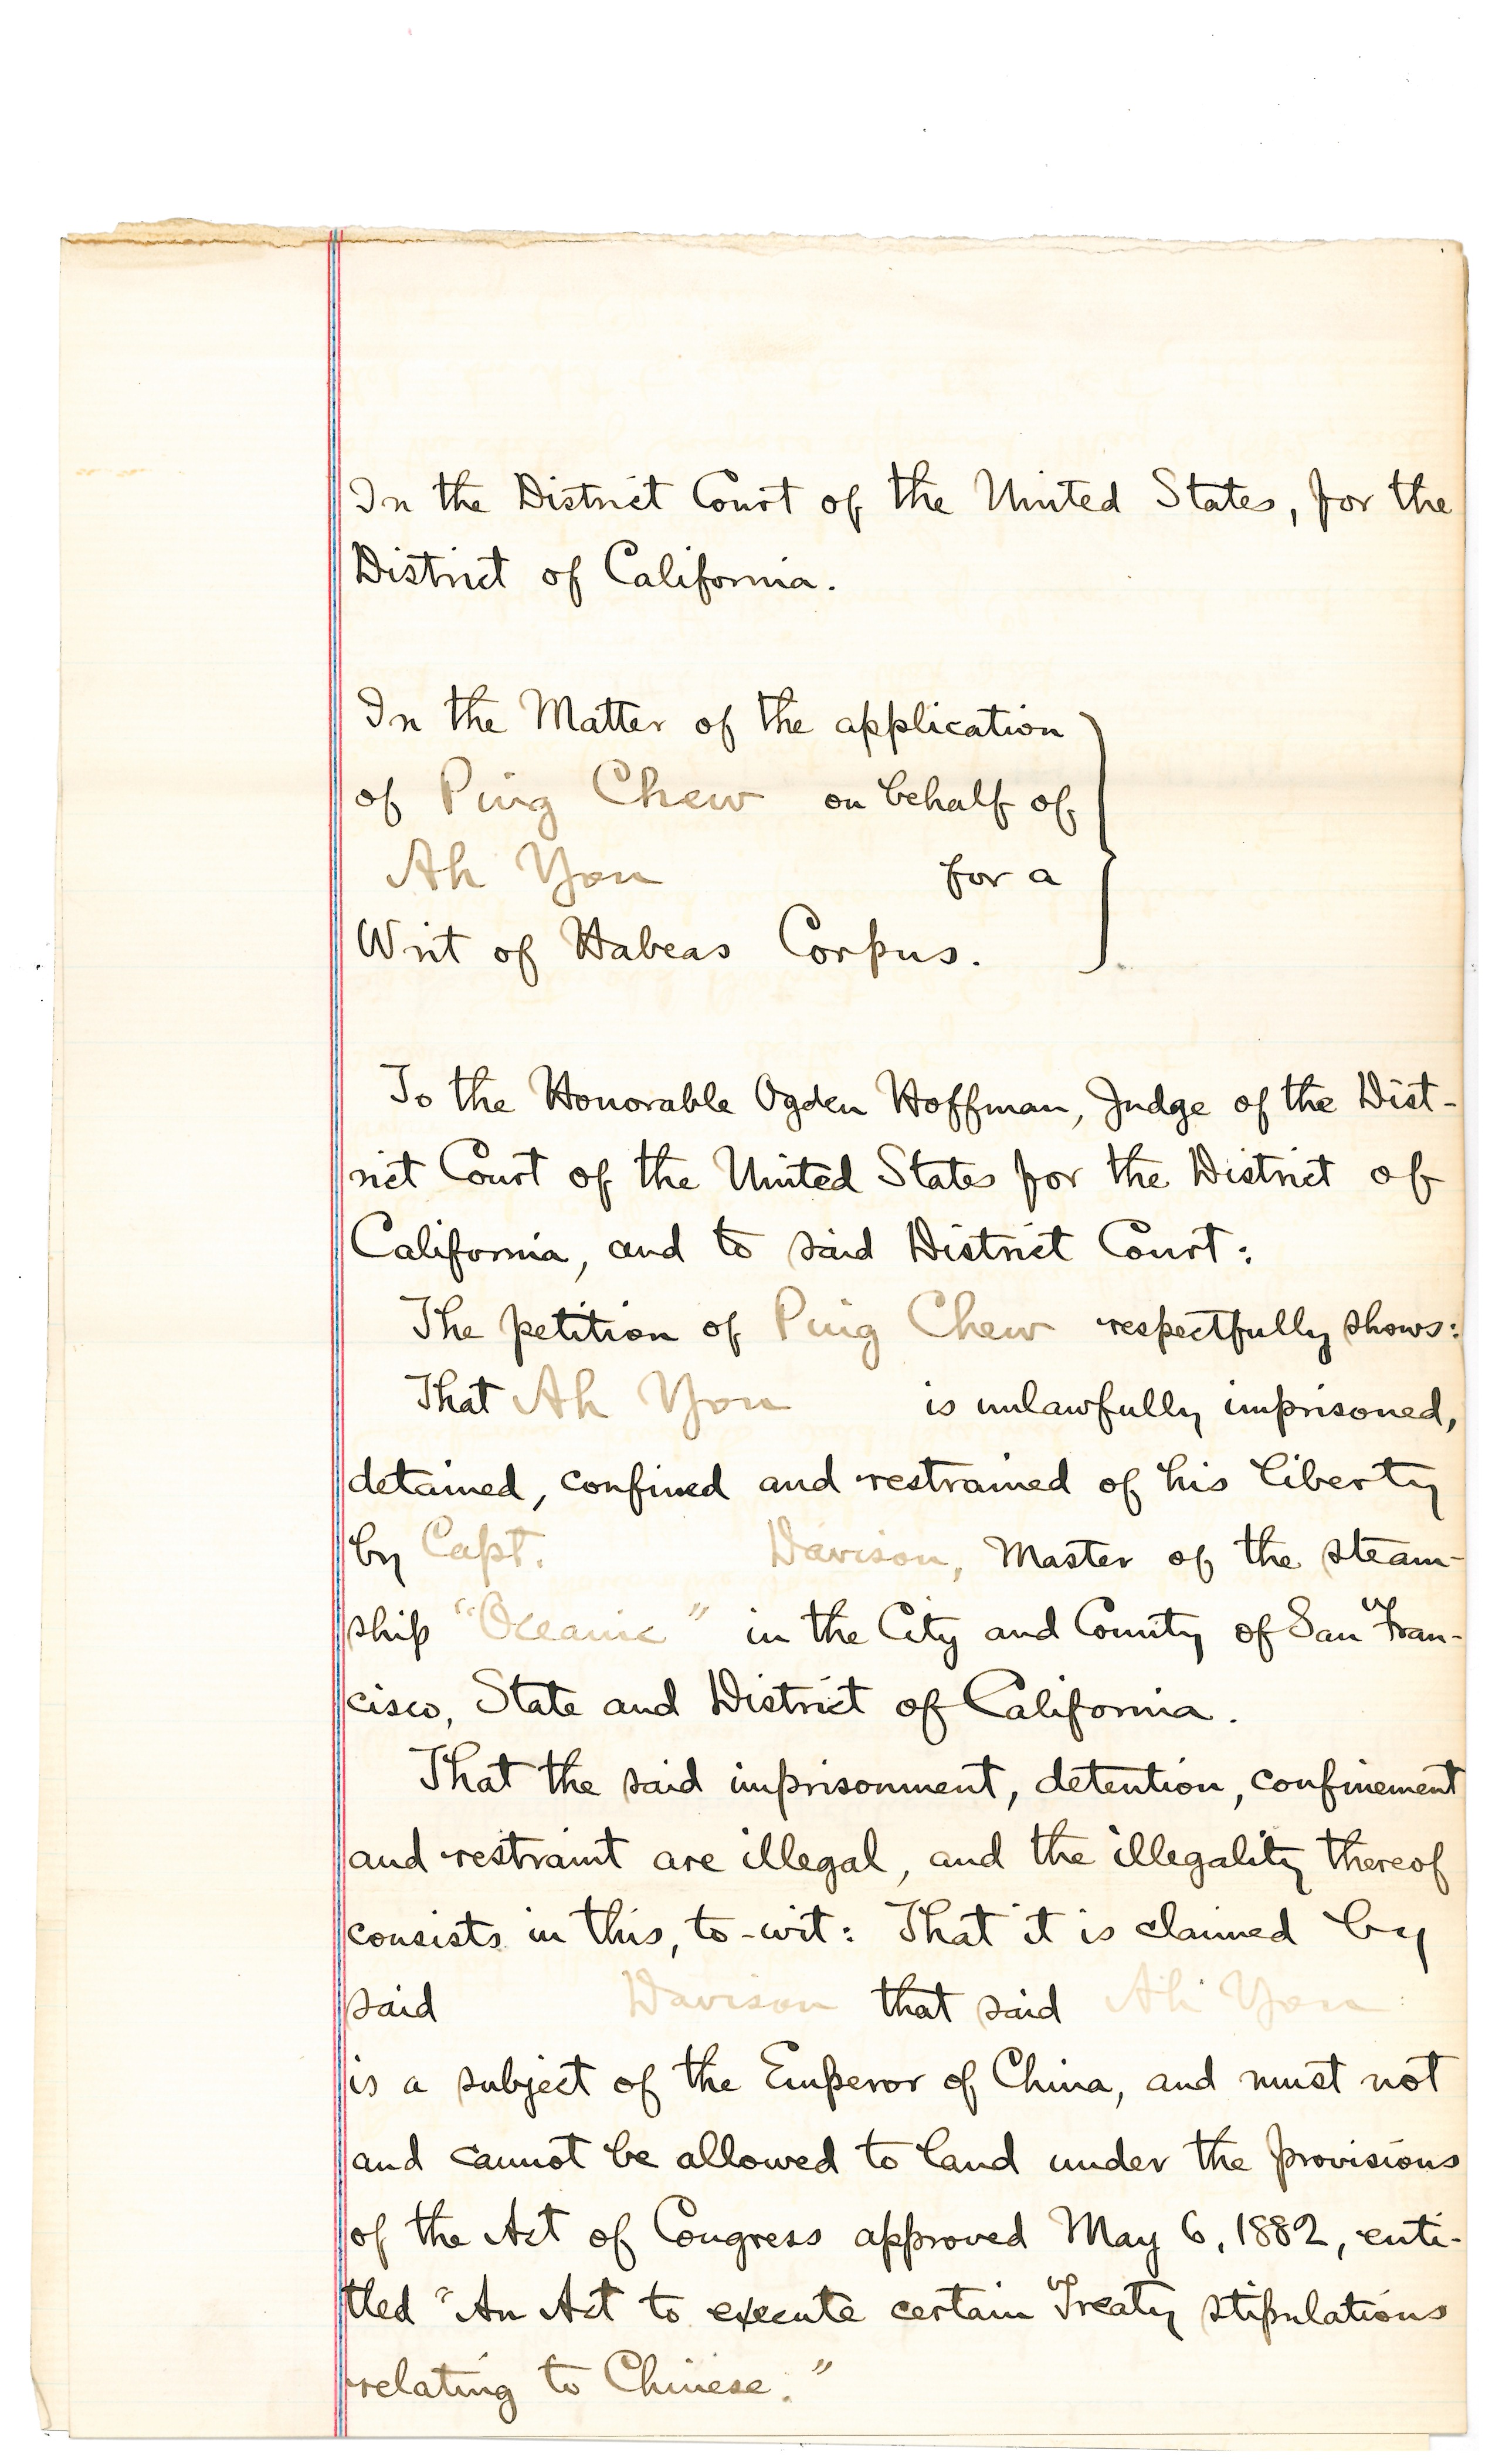 In the District Court of the United States, for the
District of California.
In the Matter of the application
of Ping Chew on behalf of
Ah You for a
Writ of Habeas Corpus.
To the Honorable Ogden Hoffman, Judge of the Dist-
rict Court of the United States for the District of
California, and to said District Court:
The petition of Ping Chew respectfully shows:
That Ah You is unlawfully imprisoned,
detained, confined and restrained of his liberty
by Capt. Davison, Master of the steam-
ship "Oceanic" in the City and County of San Fran-
cisco, State and District of California.
That the said imprisonment, detention, confinement
and restraint are illegal, and the illegality thereof
consists in this, to-wit: That it is claimed by
said Davison that said Ah You
is a subject of the Emperor of China, and must not
and cannot be allowed to land under the provisions
of the Act of Congress approved May 6, 1882, enti-
tled "An Act to execute certain Treaty stipulations
relating to Chinese."